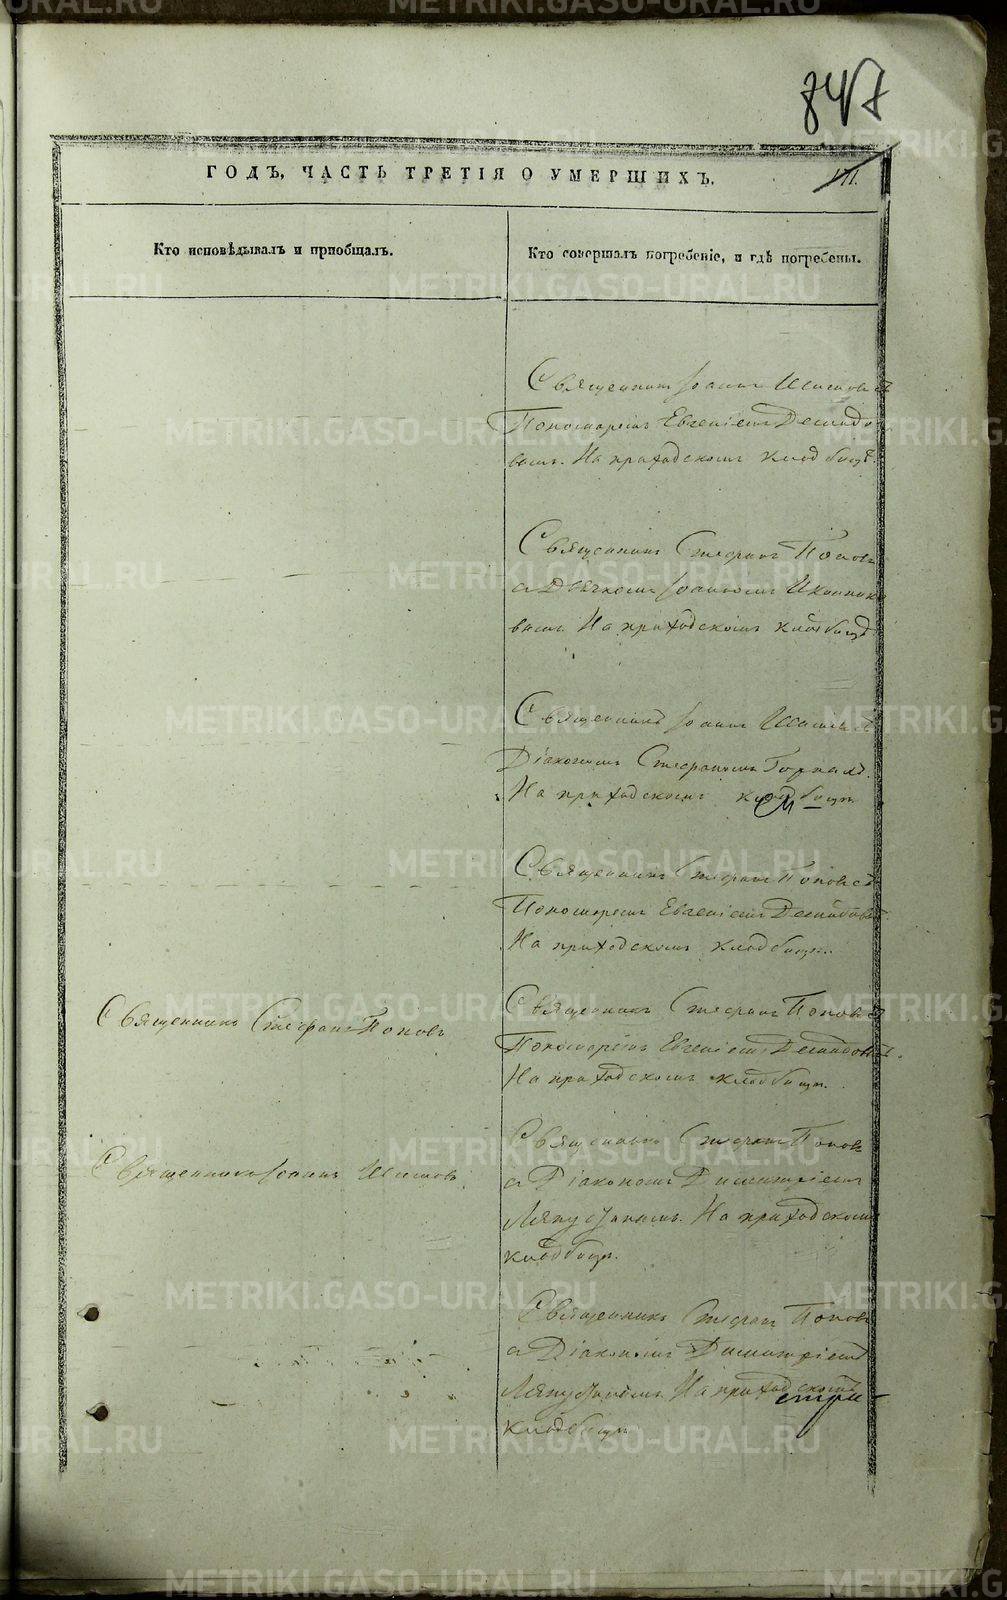 847
ГОДЪ, ЧАСТЬ ТРЕТІЯ О УМЕРШИХЪ.
III.
Кто исповѣдывалъ и пріобщалъ.
Кто совершалъ погребеніе, и гдѣ погребены.
Священникъ Іоаннъ Шишовъ съ
Пономаремъ Евгеніемъ Демидо
вымъ. На приходскомъ кладбищѣ.
Священникъ Стефанъ Поповъ
съ Дьячкомъ Іоанномъ Иконнико
вымъ. На приходскомъ кладбищѣ
Священникъ Іоаннъ Шишовъ съ
Діакономъ Стефаномъ
На приходскомъ кладбищѣ.
Священникъ Стефанъ Поповъ съ
Пономаремъ Евгеніемъ Демидовымъ.
На приходскомъ кладбищѣ.
Священникъ Стефанъ Поповъ
Священникъ Стефанъ Поповъ съ
Пономаремъ Евгеніемъ Демидовымъ.
На приходскомъ кладбищѣ.
Священникъ Іоаннъ Шишовъ
Священникъ Стефанъ Поповъ
съ Діакономъ Димитріемъ
Ляпустинымъ. На приходскомъ
кладбищѣ.
Священникъ Стефанъ Поповъ
съ Діакономъ Димитріемъ
Ляпустинымъ. На приходскомъ
кладбищѣ.
METRIKI.GASO-URAL.RU